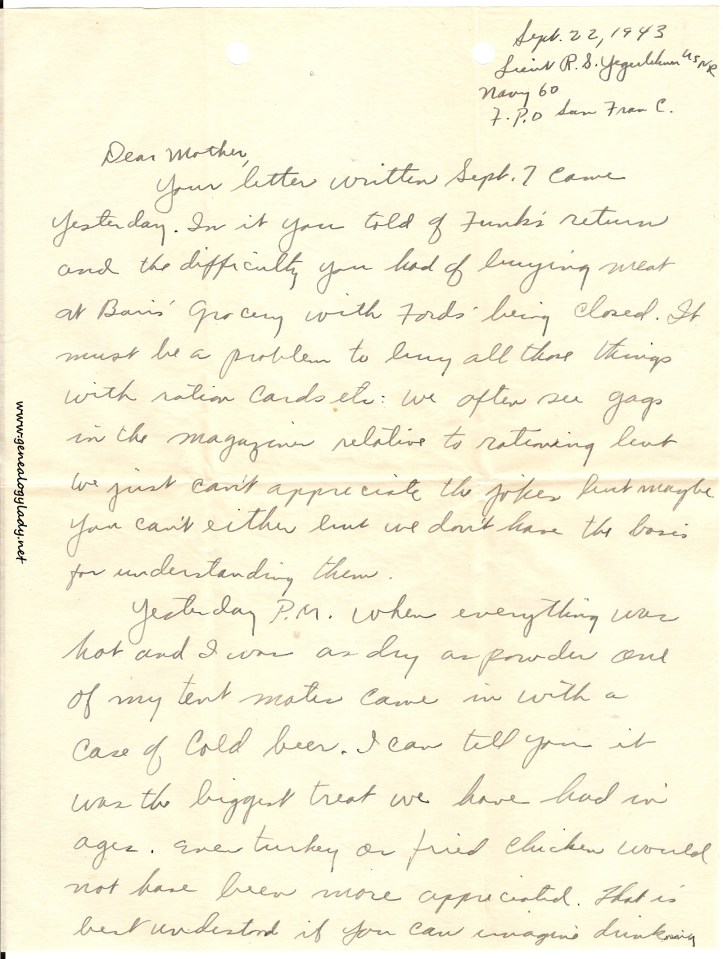 Sept. 22, 1943
Lieut R. S. Yegerlehner USNR
Navy 60
F.P.O San Fran C.
Dear Mother,
Your letter written Sept. 7 came
yesterday. In it you told of Funk's return
and the difficulty you had of buying meat
at Grocery with Fords' being closed. It
must be a problem to buy all those things
with ration cards etc: we often see gags
in the magazines relative to rationing but
we just can't appreciate the jokes but maybe
you can't either but we don't have the basis
for understanding them.
Yesterday P.M. when everything was
hot and I was as dry as powder one
of my tent mates came in with a
case of cold beer. I can tell you it
was the biggest treat we have had in
ages. Even turkey or fried chicken would
not have been more appreciated. That is
best understood if you can imagine drinking
www.genealogylady.net